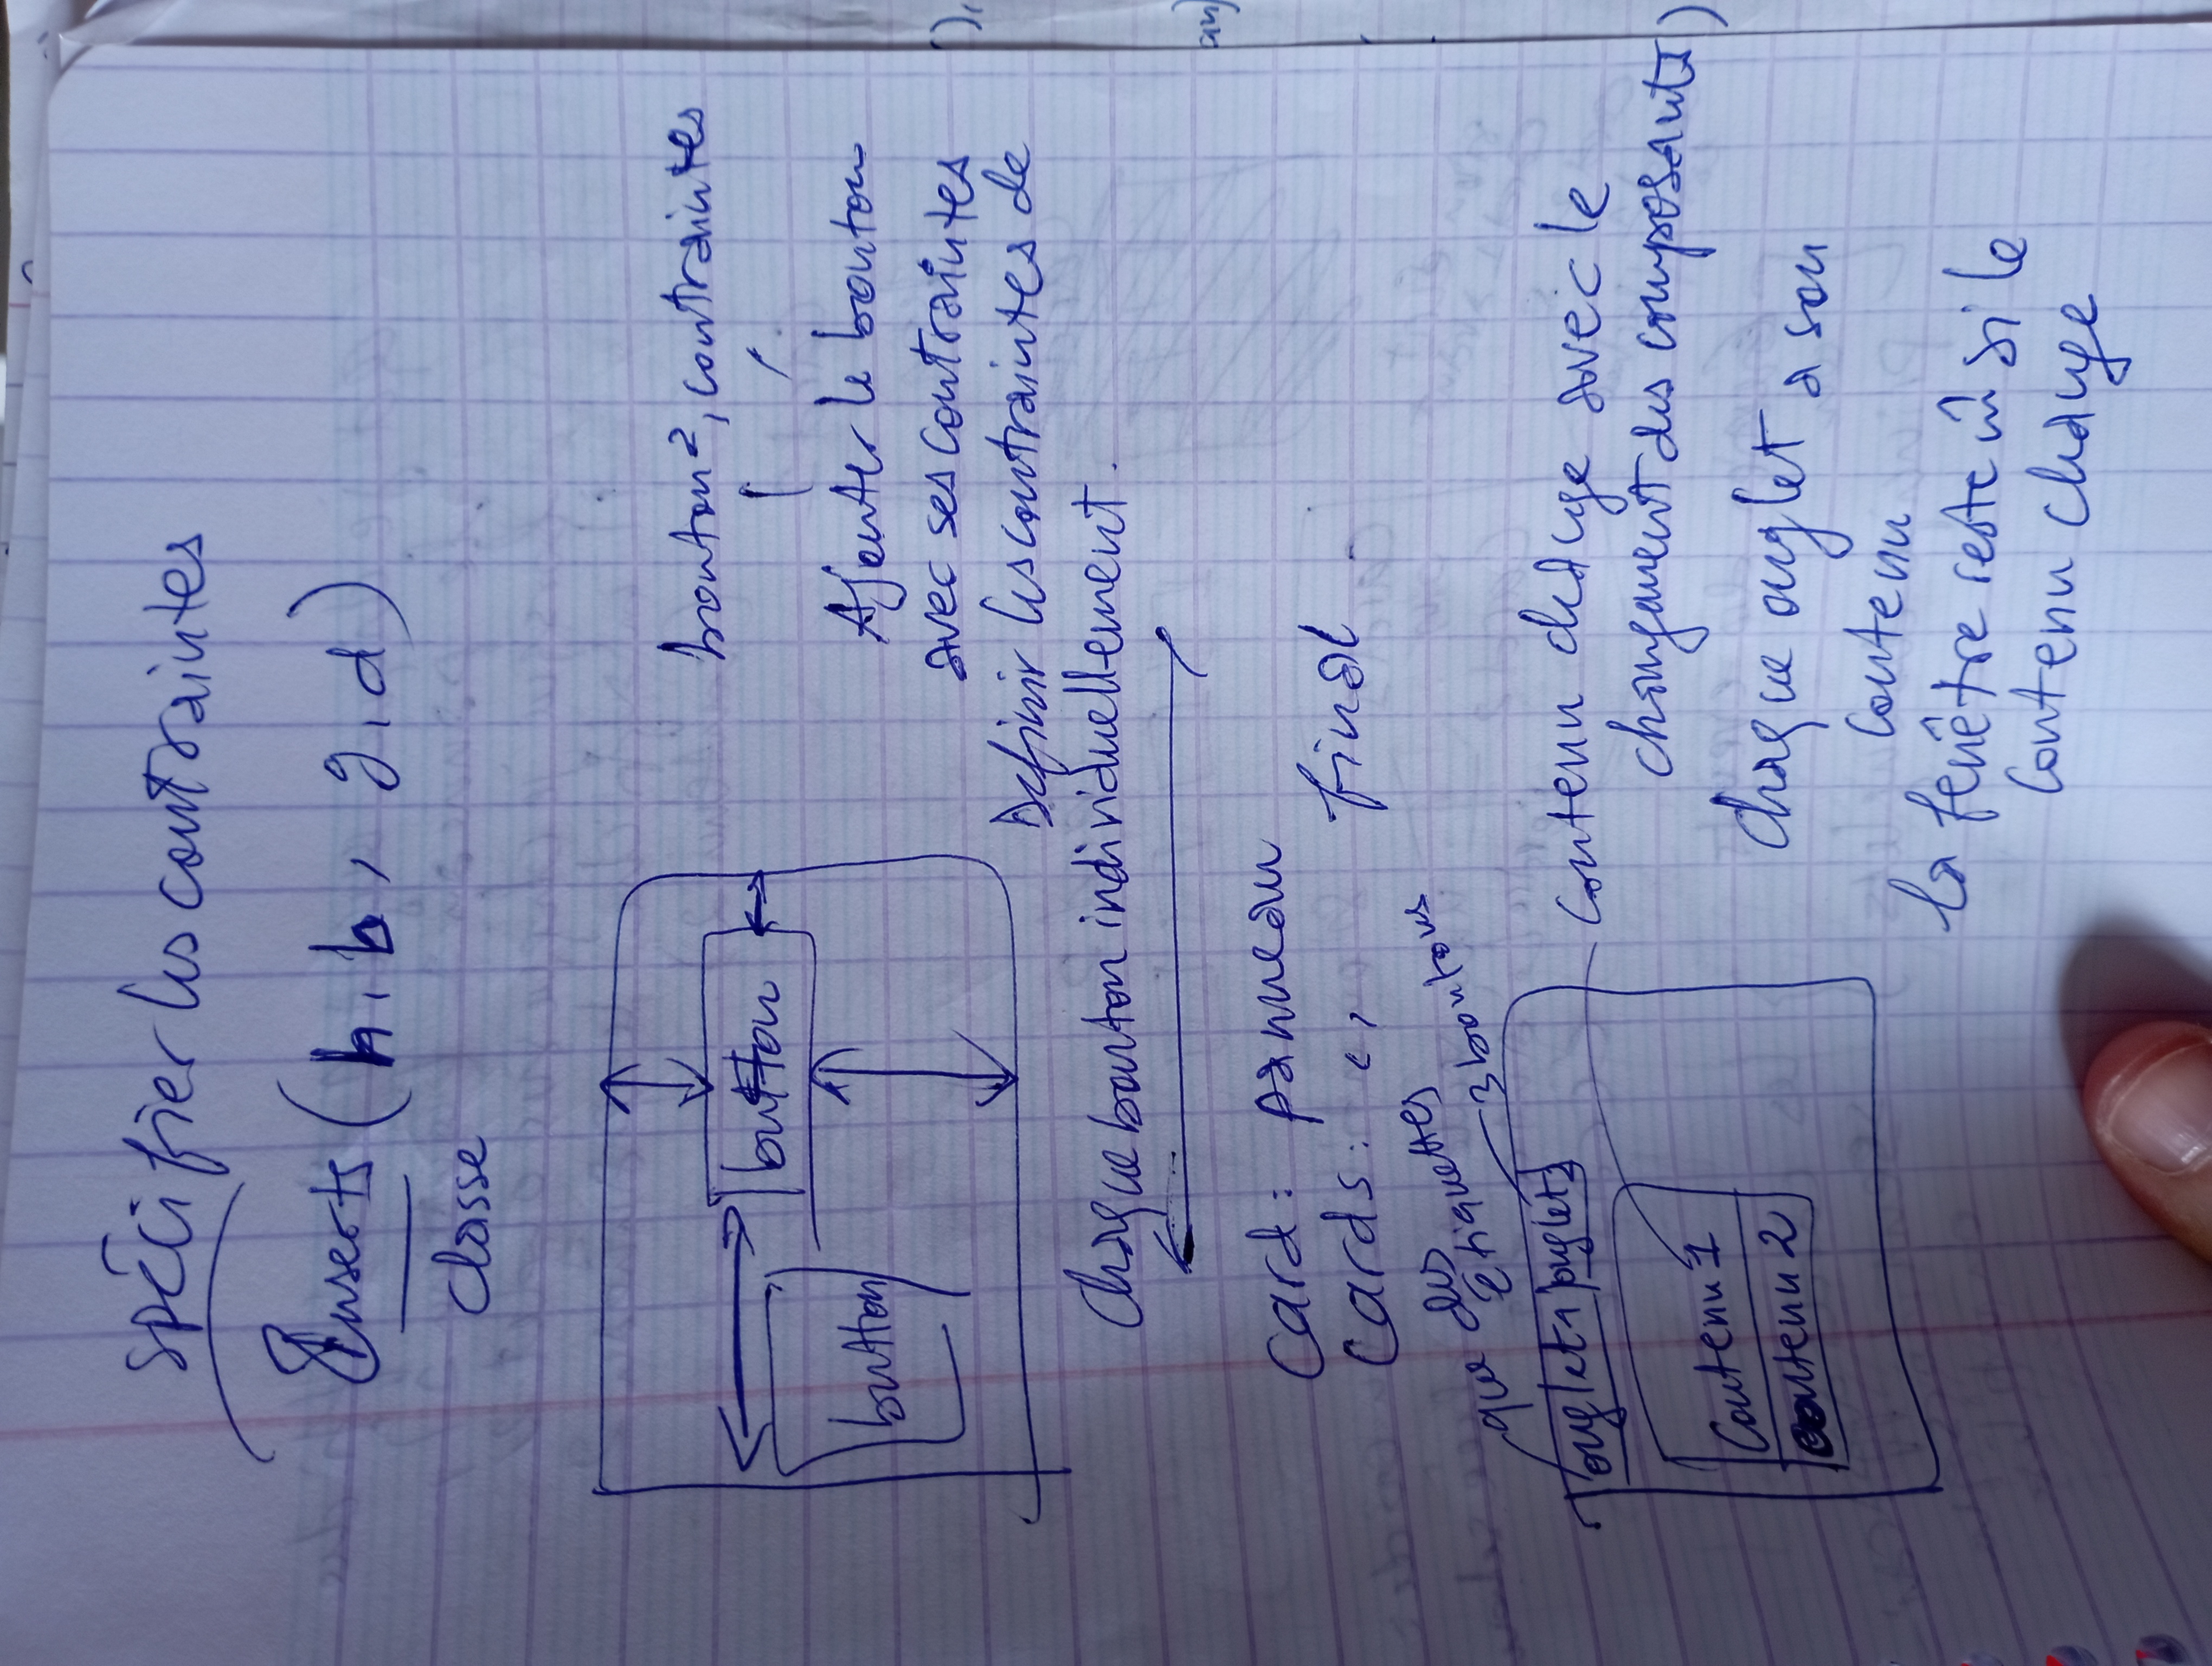 spécifier les contraintes
Inserts (h, b, g, d)
classe
button
button
bouton2, contraintes
Ajouter le bouton
avec ses contraintes
Definir les contraintes de
chaque bouton individuellement.
Card: panneau
Cards: " final
que des
étiquettes
3 boutons
onglet1 onglet2
Contenu 1
contenu 2
contenu change avec le
changement des composants)
chaque onglet a son
contenu
la fenêtre reste m̂ si le
contenu change